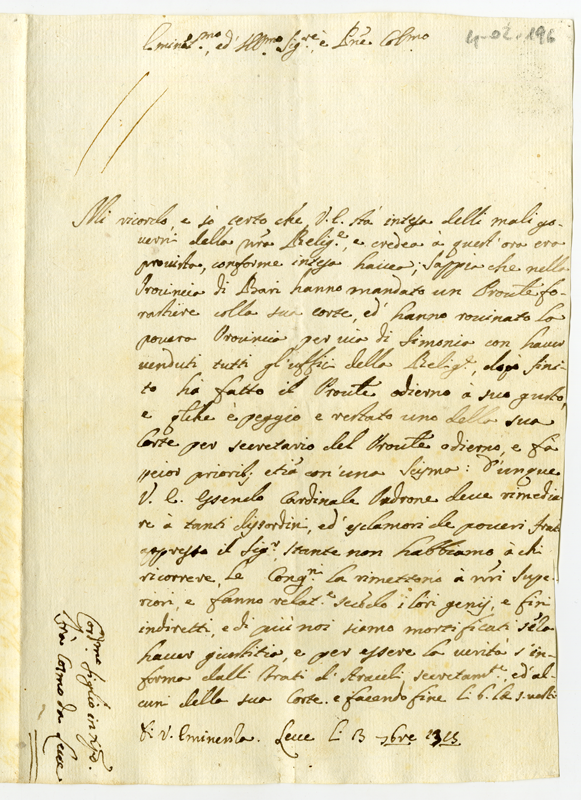 4-02-196
Eminen.mo, ed' Ill.mo Sig.re, e Pne Col.mo
Mi ricordo, e so certo che V. E. sta intesa delli mali go-
verni della nra Relig.e, e credea à quest' ora era
provista, conforme intesa havea; sappia che nella
Provincia di Bari hanno mandato un Proule fo-
rastiere colla sua corte, ed' hanno rovinato la
povera Provincia per via di simonia con haver
venduti tutti gl'uffici della Relig.e dopò fini-
to ha fatto il Proule odierno à suo gusto,
e è peggio è restato uno della sua
Corte per secretario del Proule odierno, e fa
peior priorib; etiã con' una scisma: D'unque
V. E. essendo Cardinale Padrone deve rimedia-
re à tanti disordin, ed' esclamori de poveri frati
appresso il Sig.r stante non habbiamo à chi
ricorrere, le Cong.ni la rimettono à nri supe-
riori, e fanno relat.e secõdo i lori genij, e fin
indiretti, e di più noi siamo mortificati sẽza
haver giustitia, e per essere la verità s'in-
forma dalli frati d' secretam.te, ed' al-
cuni della sua Corte. e facendo fine li b. la s. veste
Di V. Eminenza. Lecce li 13
Cord.mo figlio in
frà Cosmo da Lecce